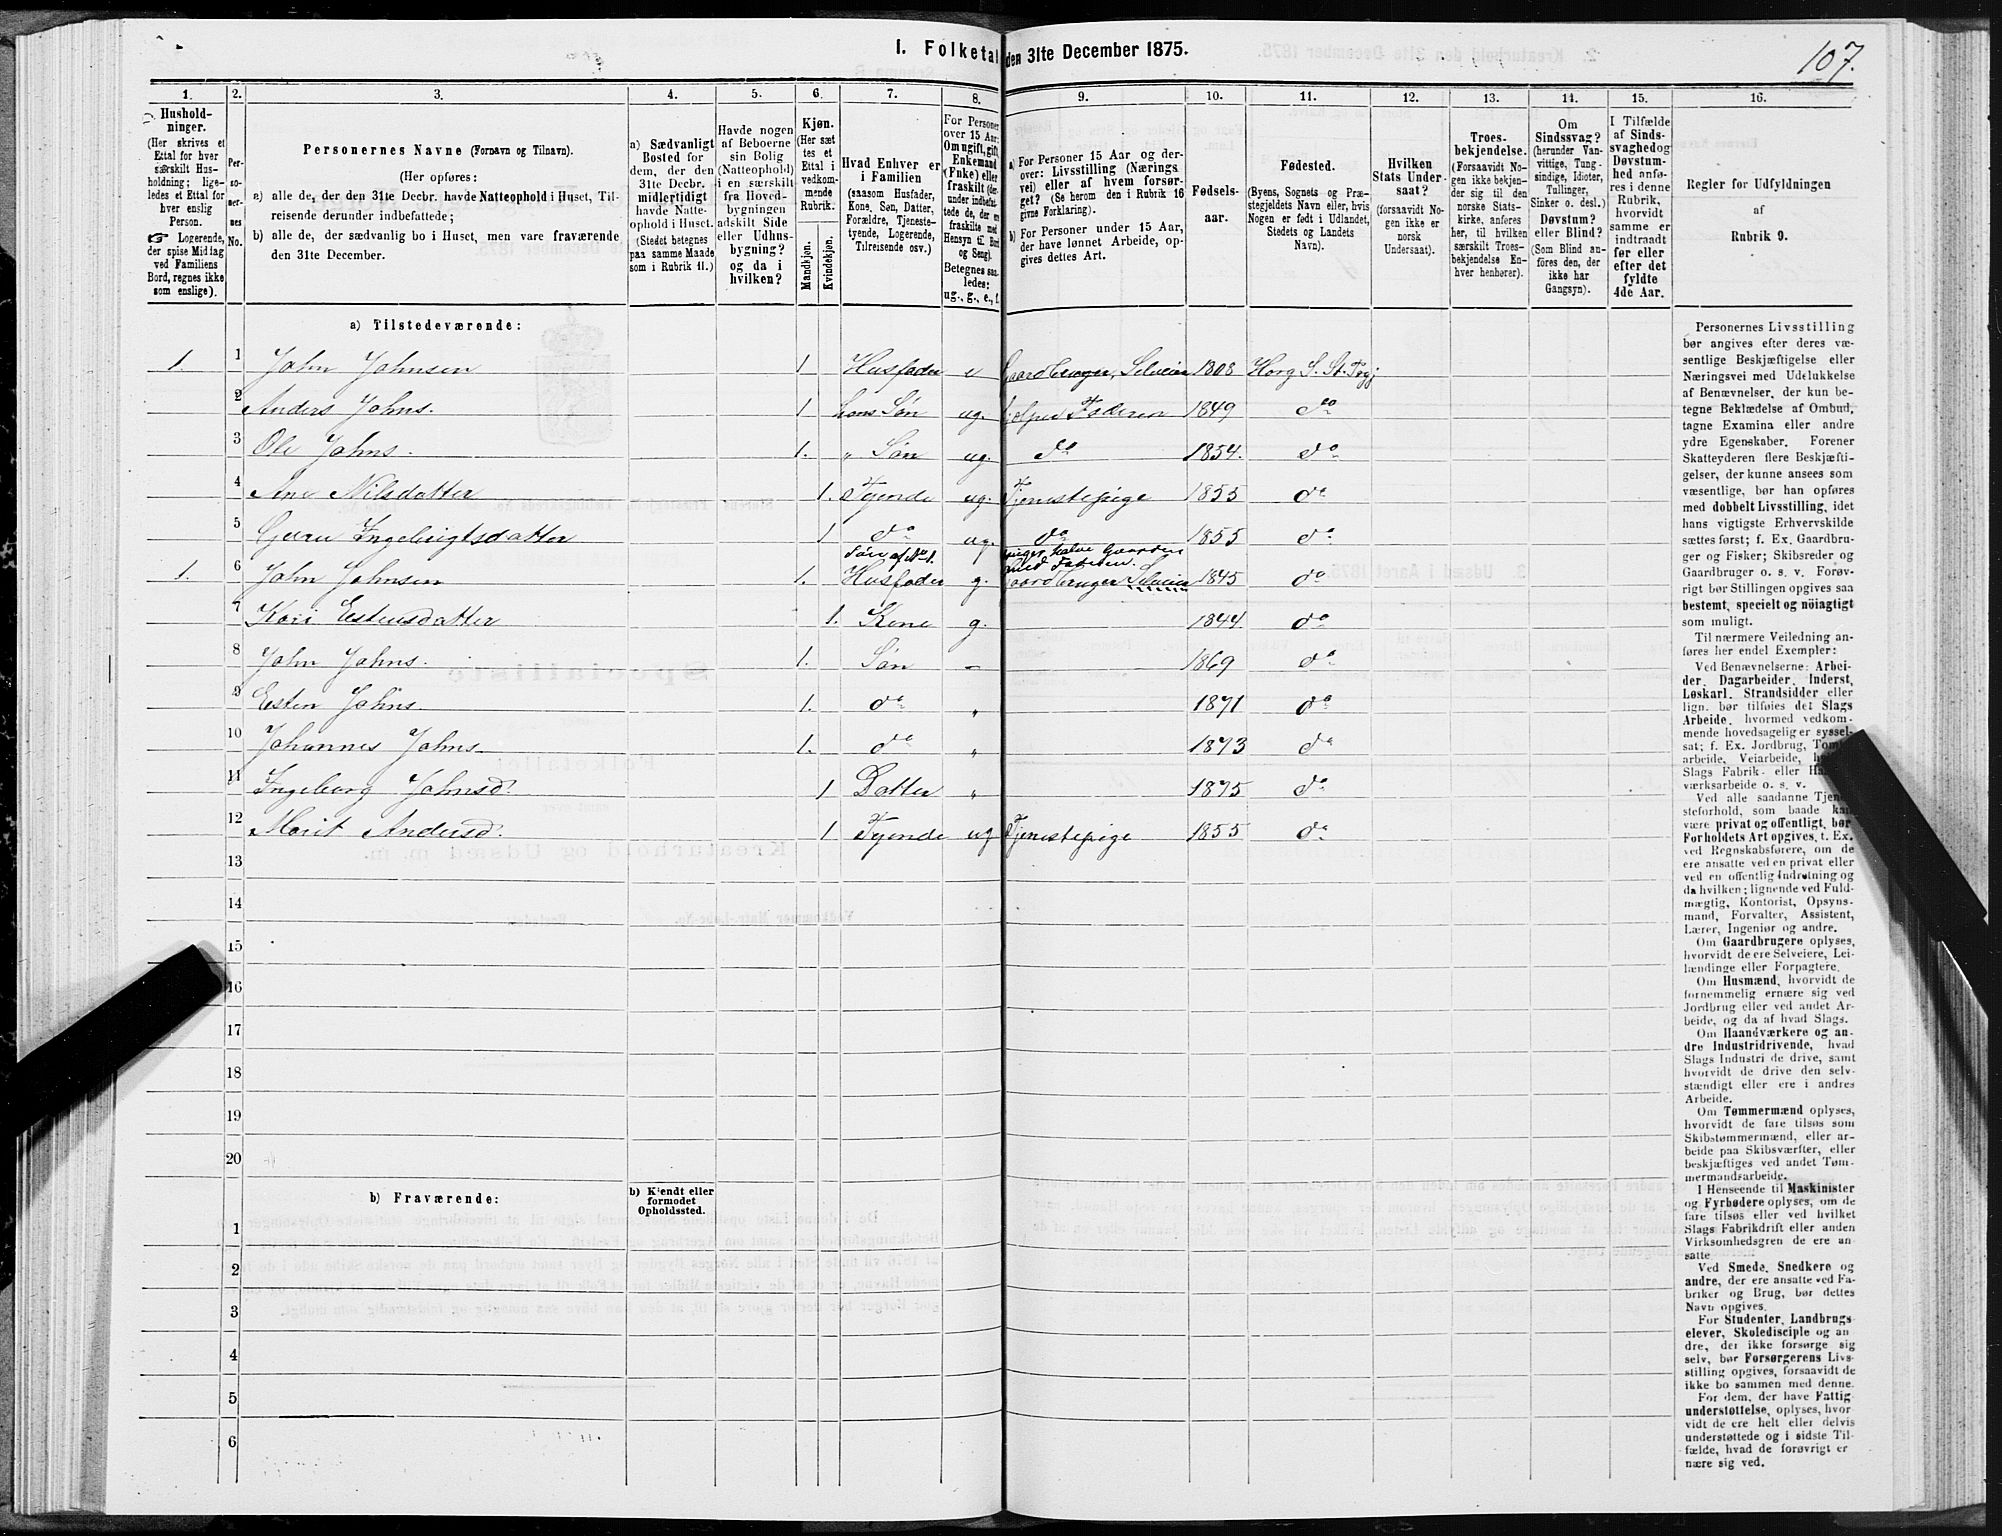 107.
I. Folketal den 31te December 1875.
1. 2. 3. 4. 5. 6. 7. 8. 9. 10. 11. 12. 13. 14. 15. 16.
Husholdninger.
(Her skrives et
Ettal for hver
særskilt Hus-
holdning; lige-
ledes et Ettal for
hver enslig
Person.
☞ Logerende,
der spise Middag
ved Familiens
Bord, regnes ikke
som enslige).
Personernes No.
Personernes Navne (Fornavn og Tilnavn).
(Her opføres:
a) alle de, der den 31te Decbr. havde Natteophold i Huset, Til-
reisende derunder indbefattede;
b) alle de, der sædvanlig bo i Huset, men vare fraværende
den 31te December.
a) Sædvanligt
Bosted for
dem, der den
31te Decbr.
midlertidigt
havde Natte-
ophold i Huset.
(Stedet betegnes
paa samme Maade
som i Rubrik 11.)
Havde nogen
af Beboerne
sin Bolig
(Natteophold)
i en særskilt
fra Hoved-
bygningen
adskilt Side
eller Udhus-
bygning?
og da i
hvilken?
Kjøn.
(Her sæt
tes et
Ettal i
vedkom-
mende
Rubrik.
Mandkjøn.
Kvindekjøn.
Hvad Enhver er
i Familien
(saasom Husfader,
Kone, Søn, Datter,
Forældre, Tjeneste-
tyende, Logerende,
Tilreisende osv.)
For Personer
over 15 Aar:
Om ugift, gift,
Enkemand
(Enke) eller
fraskilt (der-
under indbefat-
tede de, der ere
fraskilte med
Hensyn til Bord
og Seng).
Betegnes saa-
ledes:
ug., g., e., f.
a) For Personer 15 Aar og der-
over: Livsstilling (Nærings
vei) eller af hvem forsør-
get? (Se herom den i Rubrik 16
givne Forklaring).
b) For Personer under 15 Aar,
der have lønnet Arbeide, op-
gives dettes Art.
Fødsels-
aar.
Fødested.
(Byens, Sognets og Præ-
stegjeldets Navn eller, hvis
Nogen er født i Udlandet,
Stedets og Landets
Navn).
Hvilken
Stats Under-
saat?
(forsaavidt No-
gen ikke er
norsk
Undersaat).
Troes-
bekjendelse.
(Forsaavidt No-
gen ikke bekjen-
der sig til den
norske Stats-
kirke, anføres
her, til hvilken
særskilt Troes-
bekjendelse En-
hver henhører).
Om
Sindssvag?
(herunder Van-
vittige, Tung-
sindige, Idioter,
Tullinger,
Sinker o. desl.)
Døvstum?
eller Blind?
(Som Blind an-
føres den, der
ikke har
Gangsyn).
I Tilfælde
af Sinds-
svaghed og
Døvstum-
hed anfø-
res i denne
Rubrik,
hvorvidt
samme er
indtraadt
før eller
efter det
fyldte
4de Aar.
Regler for Udfyldningen
af
Rubrik 9.
a) Tilstedeværende:
1. 1 John Johnsen 1 Husfader e Gaardbruger, Selveier 1808 Horg S. St.
2 Anders Johns. 1 hans Søn ug. Faderen 1849 do
3 Ole Johns. 1. „ Søn ug. do 1854. do
4 Ane Nilsdatter 1. Tyende ug. Tjenestepige 1855 do
5 Guru Ingebrigtsdatter 1 do ug. do 1855 do
Søn af No 1. halve Gaarden
med Faderen.
1. 6 John Johnsen 1. Husfader g. Gaardbruger Selveier 1845 do
7 Kari Estensdatter 1. Kone g. 1844 do
8 John Johns. 1. Søn – 1869 do
9 Esten Johns. 1. do „ 1871 do
10 Johannes Johns. 1. do „ 1873 do
11 Ingeborg Johnsd. 1 Datter „ 1875 do
12 Marit Andersd. 1 Tyende ug Tjenestepige 1855 do
13
14
15
16
17
18
19
20
b) Fraværende: b) Kjendt eller
formodet
Opholdssted.
1
2
3
4
5
6
Personernes Livsstilling
bør angives efter deres væ-
sentlige Beskjæftigelse eller
Næringsvei med Udelukkelse
af Benævnelser, der kun be-
tegne Beklædelse af Ombud,
tagne Examina eller andre
ydre Egenskaber. Forener
Skatteyderen flere Beskjæfti-
gelser, der kunne ansees som
væsentlige, bør han opføres
med dobbelt Livsstilling, idet
hans vigtigste Erhvervskilde
sættes først; f. Ex. Gaardbru-
ger og Fisker; Skibsreder og
Gaardbruger o. s. v. Forøv-
rigt bør Stillingen opgives saa
bestemt, specielt og nøiagtigt
som muligt.
Til nærmere Veiledning an-
føres her endel Exempler:
Ved Benævnelserne: Arbei-
der, Dagarbeider, Inderst,
Løskarl, Strandsidder eller
lign. bør tilføies det Slags
Arbeide, hvormed vedkom-
mende hovedsagelig er syssel-
sat; f. Ex. Jordbrug,
arbeide, Veiarbeide,
Slags Fabrik- eller
værksarbeide o. s. v.
Ved alle saadanne Tjene-
steforhold, som baade kan
være privat og offentligt, bør
Forholdets Art opgives, t. Ex.
ved Regnskabsførere, om de
ere ansatte ved en privat eller
ved en offentlig Indretning og
da hvilken; lignende ved Fuld-
mægtig, Kontorist, Opsyns-
mand, Forvalter, Assistent,
Lærer, Ingeniør og andre.
Om Gaardbrugere oplyses,
hvorvidt de ere Selveiere, Lei-
lændinge eller Forpagtere.
Om Husmænd, hvorvidt de
fornemmelig ernære sig ved
Jordbrug eller ved andet Ar-
beide, og da af hvad Slags.
Om Haandværkere og an-
dre Industridrivende, hvad
Slags Industri de drive, samt
hvorvidt de drive den selv-
stændigt eller ere i andres
Arbeide.
Om Tømmermænd oplyses,
hvorvidt de fare tilsøs som
Skibstømmermænd, eller ar-
beide paa Skibsværfter, eller
beskjæftiges ved andet Tøm-
mermandsarbeide.
I Henseende til Maskinister
og Fyrbødere oplyses, om de
fare tilsøs eller ved hvilket
Slags Fabrikdrift eller anden
Virksomhedsgren de ere an-
satte
Ved Smede, Snedkere og
andre, der ere ansatte ved Fa-
briker og Brug, bør dettes
Navn opgives.
For Studenter, Landbrugs
elever, Skoledisciple og an
dre, der ikke forsørge sig
selv, bør Forsørgerens Livs-
stilling opgives, forsaavidt de
ikke bo sammen med denne.
For dem, der have Fattig
understøttelse, oplyses, hvor
vidt de ere helt eller delvis
understøttede og i sidste Til-
fælde, hvad de forøvrigt er
nære sig ved.